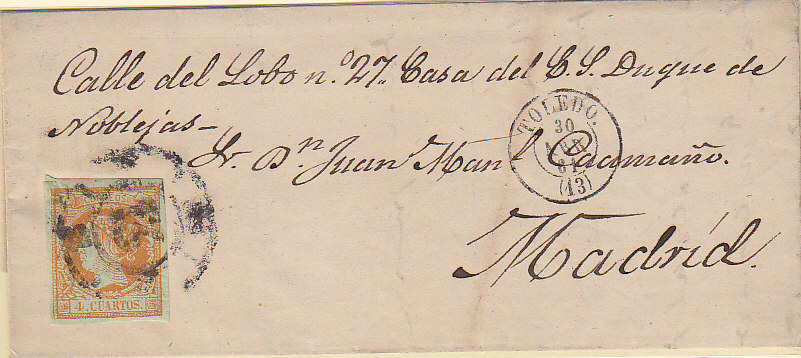 Calle del Lobo n.º 27. Casa del E. S. Duque de
Noblejas—
TOLEDO.
30
ABR
61
(13)
Sr. Dn. Juan Manl. Caamaño.
Madrid.
CORREOS
4 CUARTOS.